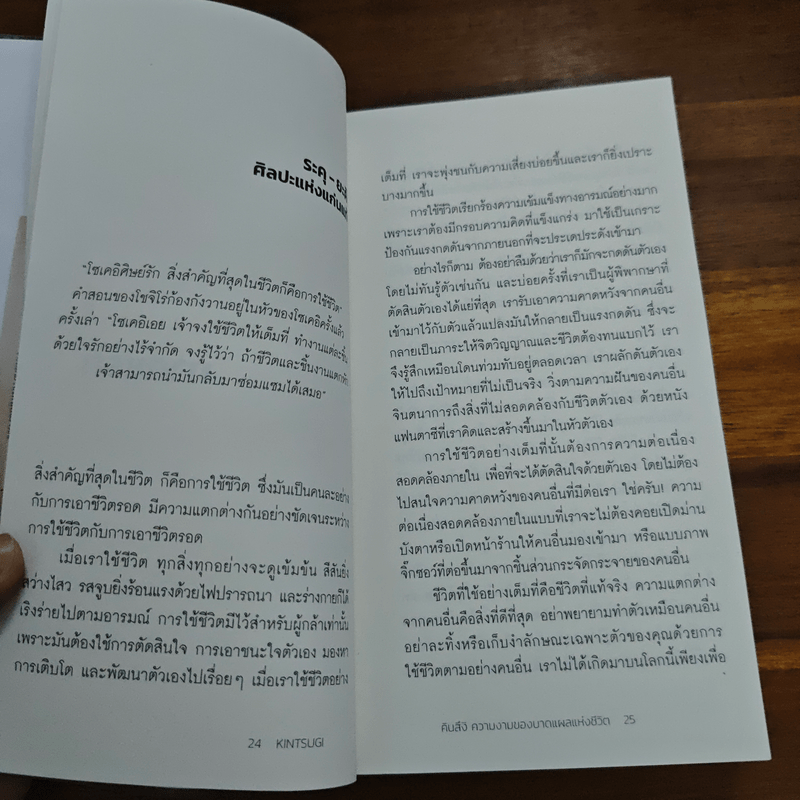 ระคุ - ยะ
ศิลปะแห่งแก่นแท้
"โซเคอิศิษย์รัก สิ่งสำคัญที่สุดในชีวิตก็คือการใช้ชีวิต"
คำสอนของโชจิโร่ก้องกังวานอยู่ในหัวของโซเคอิครั้งแล้ว
ครั้งเล่า "โซเคอิเอย เจ้าจงใช้ชีวิตให้เต็มที่ ทำงานแต่ละชิ้น
ด้วยใจรักอย่างไร้จำกัด จงรู้ไว้ว่า ถ้าชีวิตและชิ้นงานแตกหัก
เจ้าสามารถนำมันกลับมาซ่อมแซมได้เสมอ"
สิ่งสำคัญที่สุดในชีวิต ก็คือการใช้ชีวิต ซึ่งมันเป็นคนละอย่าง
กับการเอาชีวิตรอด มีความแตกต่างกันอย่างชัดเจนระหว่าง
การใช้ชีวิตกับการเอาชีวิตรอด
เมื่อเราใช้ชีวิต ทุกสิ่งทุกอย่างจะดูเข้มข้น สีสันยิ่ง
สว่างไสว รสจุบยิ่งร้อนแรงด้วยไฟปรารถนา และร่างกายก็ได้
เริงร่ายไปตามอารมณ์ การใช้ชีวิตมีไว้สำหรับผู้กล้าเท่านั้น
เพราะมันต้องใช้การตัดสินใจ การเอาชนะใจตัวเอง มองหา
การเติบโต และพัฒนาตัวเองไปเรื่อยๆ เมื่อเราใช้ชีวิตอย่าง
24 KINTSUGI
เต็มที่ เราจะพุ่งชนกับความเสี่ยงบ่อยขึ้นและเราก็ยิ่งเปราะ
บางมากขึ้น
การใช้ชีวิตเรียกร้องความเข้มแข็งทางอารมณ์อย่างมาก
เพราะเราต้องมีกรอบความคิดที่แข็งแกร่ง มาใช้เป็นเกราะ
ป้องกันแรงกดดันจากภายนอกที่จะประเดประดังเข้ามา
อย่างไรก็ตาม ต้องอย่าลืมด้วยว่าเราก็มักจะกดดันตัวเอง
โดยไม่ทันรู้ตัวเช่นกัน และบ่อยครั้งที่เราเป็นผู้พิพากษาที่
ตัดสินตัวเองได้แย่ที่สุด เรารับเอาความคาดหวังจากคนอื่น
เข้ามาไว้กับตัวแล้วแปลงมันให้กลายเป็นแรงกดดัน ซึ่งจะ
กลายเป็นภาระให้จิตวิญญาณและชีวิตต้องทนแบกไว้ เรา
จึงรู้สึกเหมือนโดนท่วมทับอยู่ตลอดเวลา เราผลักดันตัวเอง
ให้ไปถึงเป้าหมายที่ไม่เป็นจริง วิ่งตามความฝันของคนอื่น
จินตนาการถึงสิ่งที่ไม่สอดคล้องกับชีวิตตัวเอง ด้วยหนัง
แฟนตาซีที่เราคิดและสร้างขึ้นมาในหัวตัวเอง
การใช้ชีวิตอย่างเต็มที่นั้นต้องการความต่อเนื่อง
สอดคล้องภายใน เพื่อที่จะได้ตัดสินใจด้วยตัวเอง โดยไม่ต้อง
ไปสนใจความคาดหวังของคนอื่นที่มีต่อเรา ใช่ครับ! ความ
ต่อเนื่องสอดคล้องภายในแบบที่เราจะไม่ต้องคอยเปิดม่าน
บังตาหรือเปิดหน้าร้านให้คนอื่นมองเข้ามา หรือแบบภาพ
จิ๊กซอว์ที่ต่อขึ้นมาจากชิ้นส่วนกระจัดกระจายของคนอื่น
ชีวิตที่ใช้อย่างเต็มที่คือชีวิตที่แท้จริง ความแตกต่าง
จากคนอื่นคือสิ่งที่ดีที่สุด อย่าพยายามทำตัวเหมือนคนอื่น
อย่าละทิ้งหรือเก็บงำลักษณะเฉพาะตัวของคุณด้วยการ
ใช้ชีวิตตามอย่างคนอื่น เราไม่ได้เกิดมาบนโลกนี้เพียงเพื่อ
คินสึงิ ความงามของบาดแผลแห่งชีวิต 25